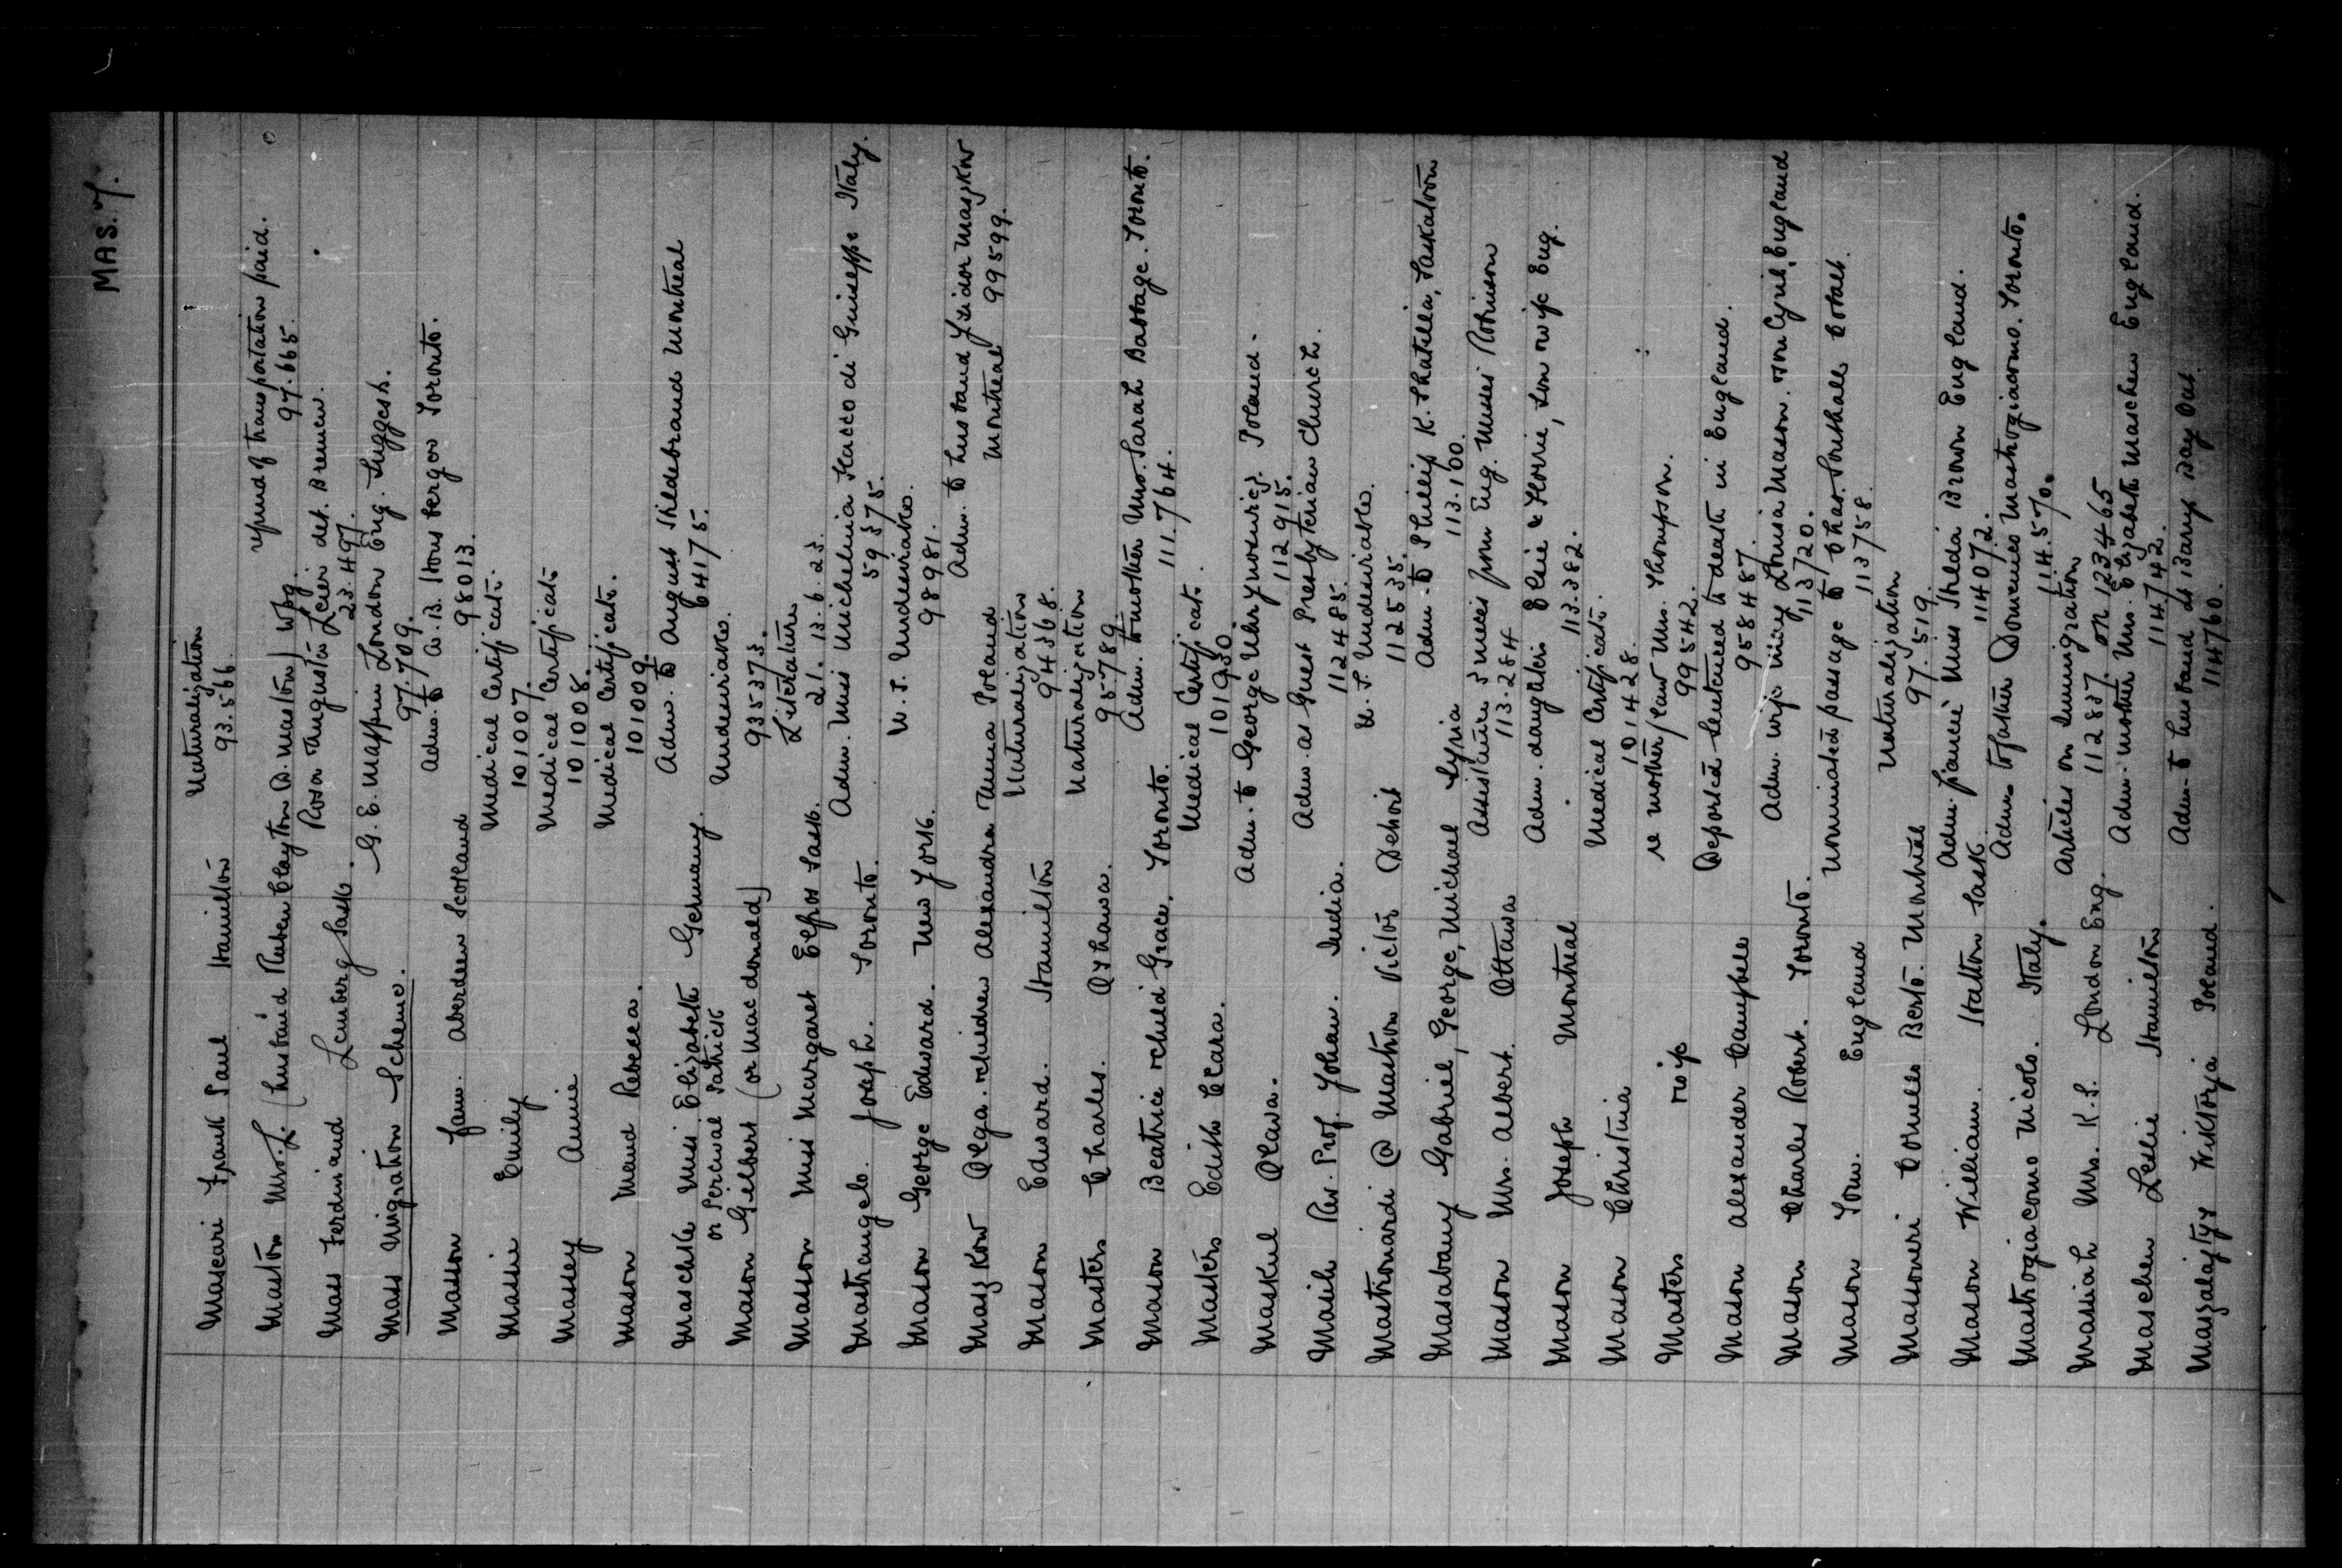 MAS. 7.
Mascari Frank Paul Hamilton Naturalization
93.566
Maston Mrs. L. (husband Ruben Clayton D. Maston) Wpg. refund of transportation paid.
97.665.
Mass Ferdinand Lemberg Sask. Rosa Augusta Leier det. Bremen.
23.497.
Mass Migration Scheme. G. E. Mappin London Eng. Suggesn.
97.709.
Masson Jam. Aberdeen Scotland Adm. to W. B. Housberger Toronto.
98013.
Massie Emily Medical Certificate.
101007.
Massey Annie Medical Certificate
101008.
Mason Maud Rebecca. Medical Certificate.
101009.
Maschke Miss. Elizabeth Germany. Adm. to August Hildebrand Montreal
64175.
or Percival Patrick
Mason Gilbert (or Macdonald) Undesirable.
935373.
Masson Miss Margaret Elfros Sask. Literature
21.13.6.23.
Mastrangelo. Joseph. Toronto. Adm. Miss Michelinia Stacco di Guiseppe Italy.
59375.
Mason George Edward. New York. U. S. Undesirable.
98981.
Maszkow Olga. & children Alexandra Anna Poland Adm. to husband Izidor Maszkow
Montreal 99599.
Mason Edward. Hamilton Naturalization
94368.
Masters Charles. Oshawa. Naturalization
95789.
Mason Beatrice & child Grace. Toronto. Adm. to mother Mrs. Sarah Bastage. Toronto.
111.764.
Masters Edith Clara. Medical Certificate.
101930.
Maskul Olena. Adm. to George Uhrynowicz. Poland.
112915.
Masih Rev. Prof. Yohan. India. Adm. as Guest Presbyterian Church.
112485.
Mastronardi @ Mastron Victor Detroit U. S. Undesirable.
112535.
Masabany Gabriel, George, Michael Syria Adm. to Phillip K. Shatilla, Saskatoon
113.100.
Mason Mrs. Albert. Ottawa Assist'd 3 nieces from Eng. Misses Robinson
113.284
Mason Joseph Montreal Adm. daughters Elsie & Florrie, son & wife Eng.
113.382.
Mason Christina Medical Certificate.
101428.
Masters wife re mother/law Mrs. Thompson.
99542.
Mason Alexander Campbell Deported Sentenced to death in England.
958487.
Mason Charles Robert. Toronto. Adm. wife Mrs Louisa Mason. son Cyril, England
113720.
Mason Tom. England Nominated passage to Chas. Southall
113758.
Massoneri Cornello Berto. Montreal Naturalization
97.519.
Mason William. Hatton Sask. Adm. fiancé Miss Hilda Brown England.
114072.
Mastrogiacomo Nicolo. Italy. Adm. to father Domenico Mastrogiacomo. Toronto.
114.570.
Massiah Mrs. K. S. London Eng. Articles on Immigration
112837. on 123465
Maschen Leslie Hamilton Adm. mother Mrs. Elizabeth Maschen England.
114742.
Maszalajtyz Wiktorja Poland. Adm. to husband at Barrys Bay Ont.
114760.